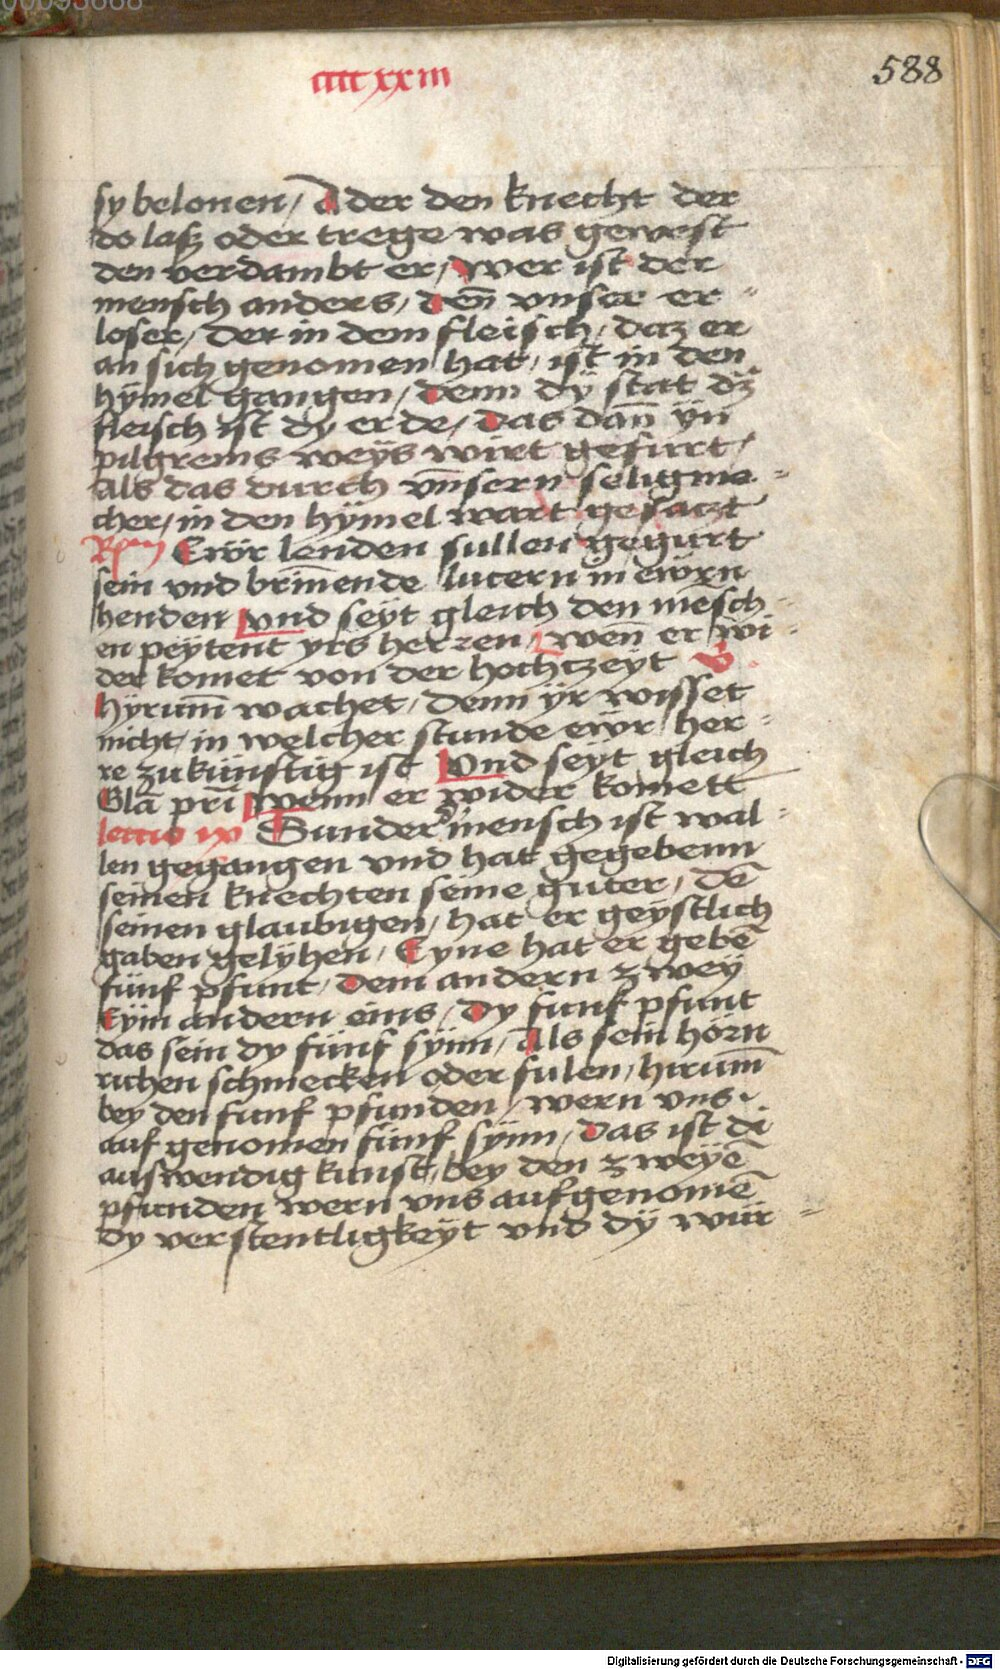 00095668
cccc xx iii
588
sy belonen / Ader den knecht der
do lasz oder trege was gewest
den verdambt er / wer ist der
mensch anders / den̄ vnser er =
loser / der in dem fleisch / daz er
an sich genomen hat / ist in den
hÿmel gangen / denn dÿ stat dz
fleisch ist dy erde / das dan̄ ÿn
pilgrems weÿs wirt gefurt /
als das durch vn̄sern seligma =
cher / in den hÿmel wart gesaczt
Rm̄ Ewr lenden sullen gegurt
sein vnd brin̄ende lucern in ewrn
henden vnd seÿt gleich den mēsch =
en peÿtent yrs herren / wen̄ er wi =
der komet von der hochczeÿt V
hÿrum̄ wachet / denn ÿr wisset
nicht / in welcher stunde ewr her =
re zukünftig ist Vnd seyt gleich
Glā prī wenn er wider komett
lectio ix Sunder mensch ist wal =
len gegangen vnd hat gegebenn
seinen knechten seine guter / dē
seinen glaubigen / hat er geÿstlich
gaben gelÿhen / Eyne hat er gebē
fünf pfunt / dem andern zweÿ
Eÿm andern eins / Dy funf pfunt
das sein dy fünf sÿnn / Als sein hörn
richen schmecken oder fulen / hirum̄
bey den funf pfunden / wern vns
auf genomen fünf sÿnn / das ist di
auswendig kunst / bey den zweÿē
pfunden wern vns aufgenomē
dy verstentligkeÿt vnd dÿ wür =
Digitalisierung gefördert durch die Deutsche Forschungsgemeinschaft - DFG